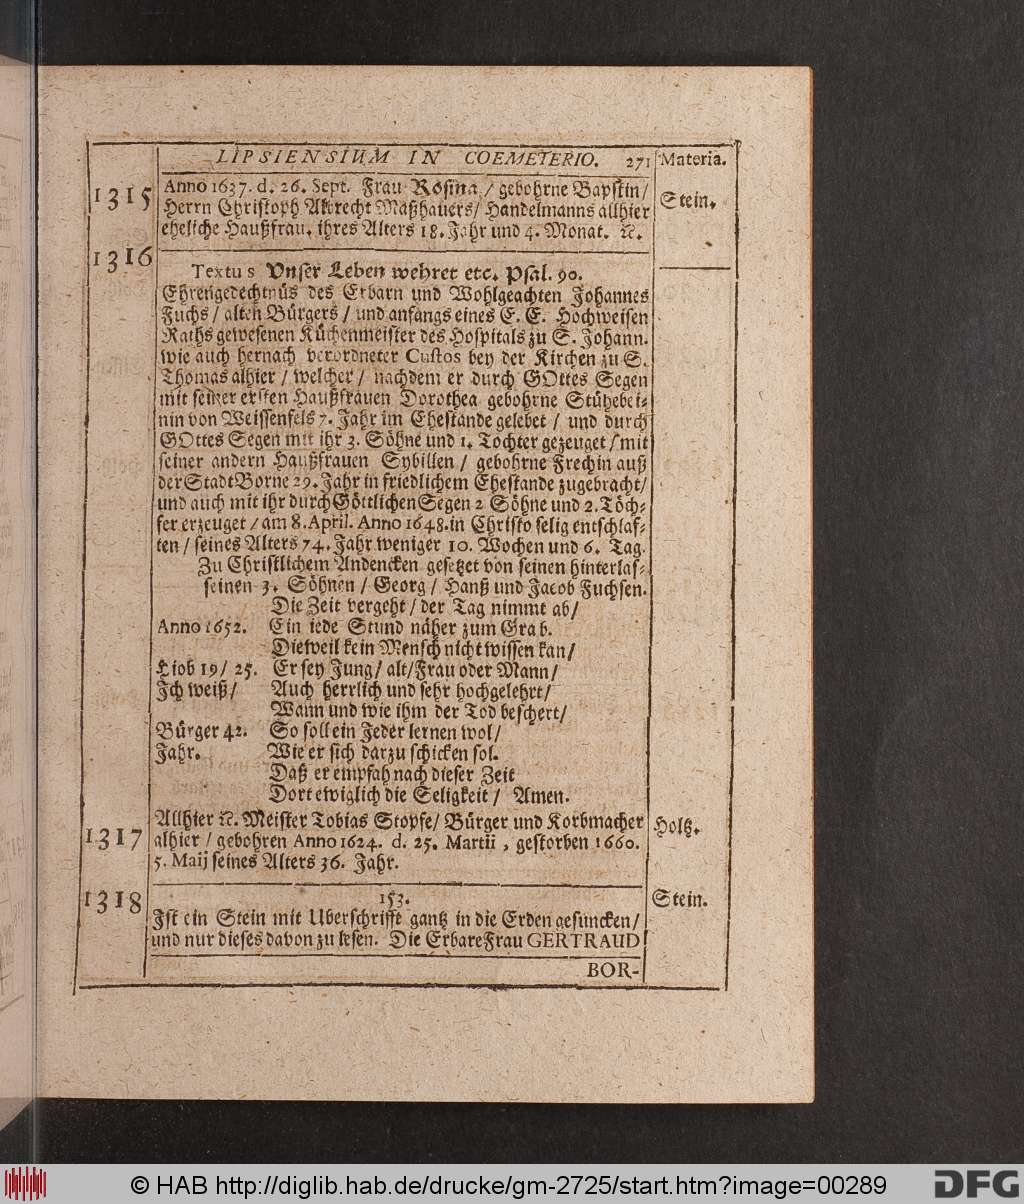 LIPSIENSIUM IN COEMETERIO. 271 Materia.
1315 Anno 1637. d. 26. Sept. Frau Rosina / gebohrne Bapstin /
Herrn Christoph Albrecht Maßhauers / Handelmanns allhier Stein.
eheliche Haußfrau, ihres Alters 18. Jahr und 4. Monat. ꝛc.
1316
Textus Unser Leben wehret etc. Psal. 90.
Ehrengedechtnüs des Erbarn und Wohlgeachten Johannes
Fuchs / alten Bürgers / und anfangs eines E. E. Hochweisen
Raths gewesenen Küchenmeister des Hospitals zu S. Johann.
wie auch hernach verordneter Custos bey der Kirchen zu S.
Thomas alhier / welcher / nachdem er durch GOttes Segen
mit seiner ersten Haußfrauen Dorothea gebohrne Stützebei-
nin von Weissenfels 7. Jahr im Ehestande gelebet / und durch
GOttes Segen mit ihr 3. Söhne und 1. Tochter gezeuget / mit
seiner andern Haußfrauen Sybillen / gebohrne Frechin auß
der Stadt Borne 29. Jahr in friedlichem Ehestande zugebracht /
und auch mit ihr durch Göttlichen Segen 2 Söhne und 2. Töch-
ter erzeuget / am 8. April. Anno 1648. in Christo selig entschlaf-
fen / seines Alters 74. Jahr weniger 10. Wochen und 6. Tag.
Zu Christlichem Andencken gesetzet von seinen hinterlas-
seinen 3. Söhnen / Georg / Hanß und Jacob Fuchsen.
Die Zeit vergeht / der Tag nimmt ab /
Anno 1652. Ein iede Stund näher zum Grab.
Dieweil kein Mensch nicht wissen kan /
Hiob 19 / 25. Er sey Jung / alt / Frau oder Mann /
Ich weiß / Auch herrlich und sehr hochgelehrt /
Wann und wie ihm der Tod beschert /
Bürger 42. So soll ein Jeder lernen wol /
Jahr. Wie er sich darzu schicken sol.
Daß er empfah nach dieser Zeit
Dort ewiglich die Seligkeit / Amen.
Allhier ꝛc. Meister Tobias Stopfe / Bürger und Korbmacher Holtz.
1317 alhier / gebohren Anno 1624. d. 25. Martii, gestorben 1660.
5. Maij seines Alters 36. Jahr.
1318 153. Stein.
Ist ein Stein mit Uberschrifft gantz in die Erden gesuncken /
und nur dieses davon zu lesen. Die Erbare Frau GERTRAUD
BOR-
© HAB http://diglib.hab.de/drucke/gm-2725/start.htm?image=00289
DFG